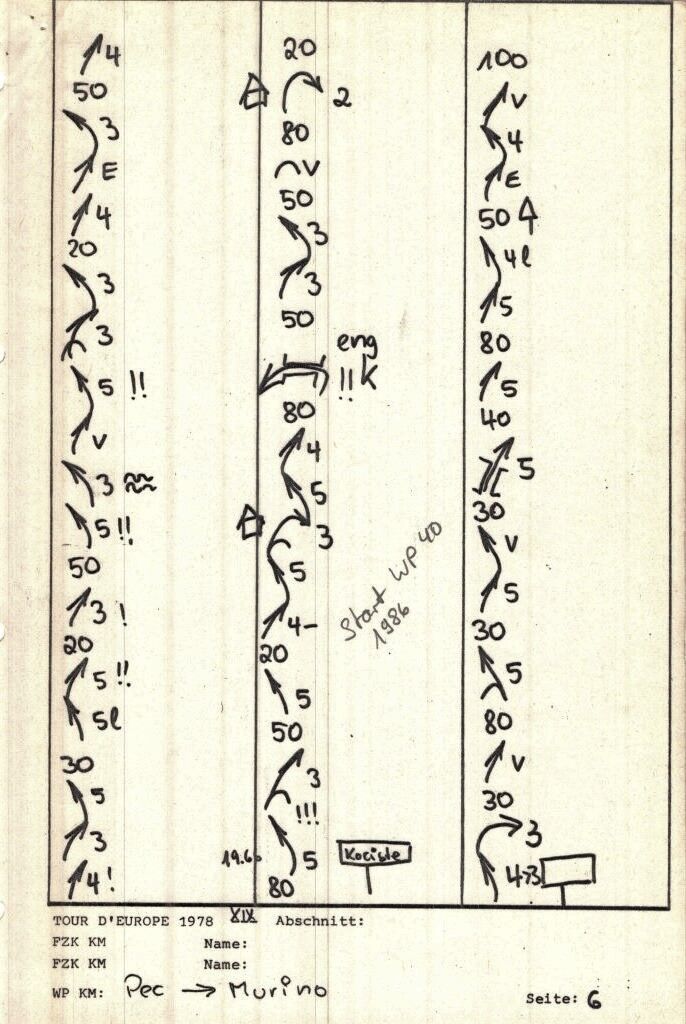 4
50
3
E
4
20
3
3
5 !!
V
3 ≈≈
5 !!
50
3 !
20
5 !!
5l
30
5
3
4!
20
2
80
V
50
3
3
50
eng
!! K
80
4
5
3
5
4-
20
5
50
3
!!!
5
80
19.60
Kociste
Start WP 40
1986
100
V
4
E
50
4l
5
80
5
40
5
30
V
5
30
5
80
V
30
3
4-3
TOUR D'EUROPE 1978 XIX Abschnitt:
FZK KM Name:
FZK KM Name:
WP KM: Pec → Murino
Seite: 6